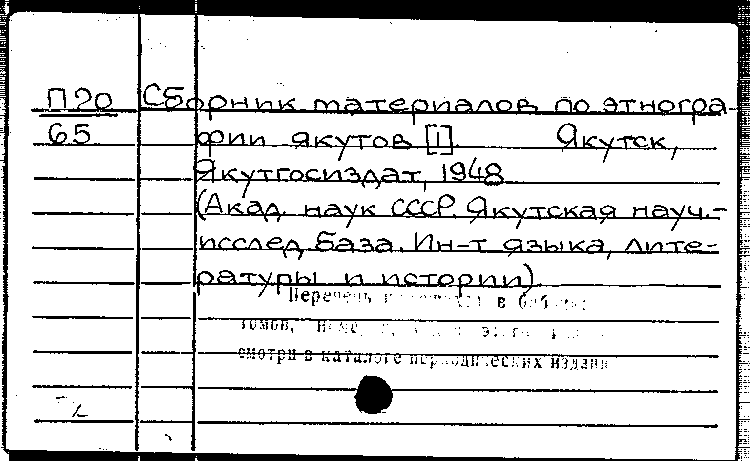 П20 Сборник материалов по этногра-
65 фии якутов [1]. Якутск,
Якутгосиздат, 1948
(Акад. наук СССР. Якутская науч.-
исслед. база. Ин-т языка, лите-
ратуры и истории).
Перечень в
томов,
смотри в каталоге периодических издани